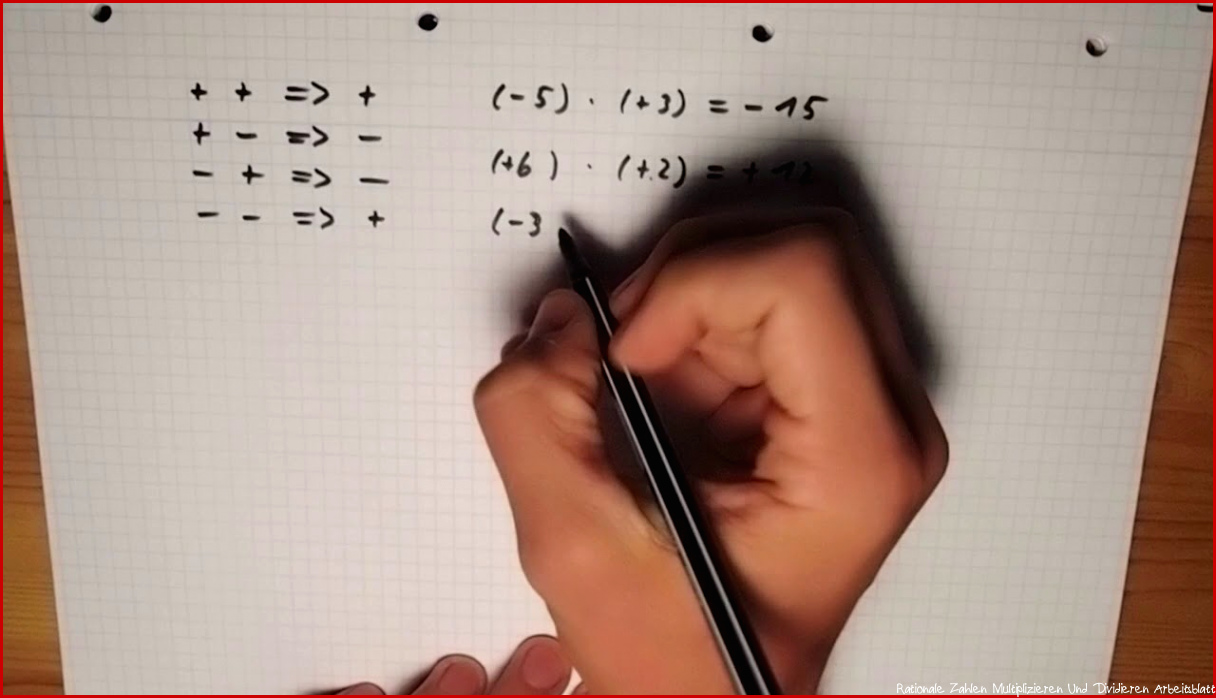 + + => + (-5) · (+3) = -15
+ - => - (+6) · (+2) = +12
- + => -
- - => + (-3
Rationale Zahlen Multiplizieren Und Dividieren Arbeitsblatt